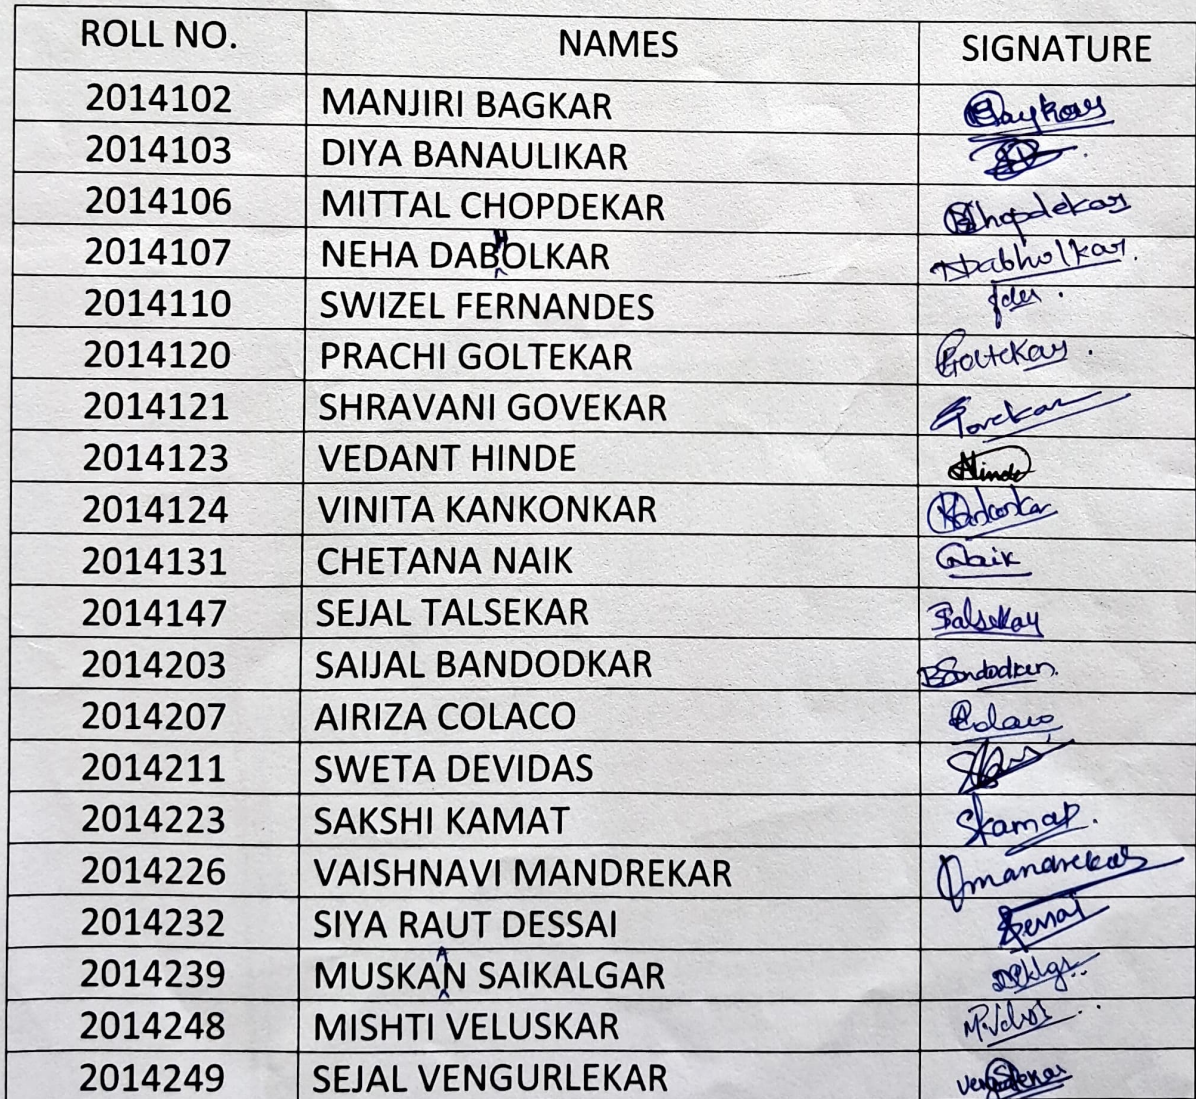 ROLL NO. NAMES SIGNATURE
2014102 MANJIRI BAGKAR Bagkar
2014103 DIYA BANAULIKAR
2014106 MITTAL CHOPDEKAR Chopdekar
2014107 NEHA DABHOLKAR NDabholkar.
2014110 SWIZEL FERNANDES fdes.
2014120 PRACHI GOLTEKAR Goltekar.
2014121 SHRAVANI GOVEKAR Govekar
2014123 VEDANT HINDE Hinde
2014124 VINITA KANKONKAR Kankonkar
2014131 CHETANA NAIK Naik
2014147 SEJAL TALSEKAR Talsekar
2014203 SAIJAL BANDODKAR Bandodkar.
2014207 AIRIZA COLACO Colaco
2014211 SWETA DEVIDAS
2014223 SAKSHI KAMAT Skamat.
2014226 VAISHNAVI MANDREKAR Vmandrekar
2014232 SIYA RAUT DESSAI
2014239 MUSKAN SAIKALGAR
2014248 MISHTI VELUSKAR
2014249 SEJAL VENGURLEKAR